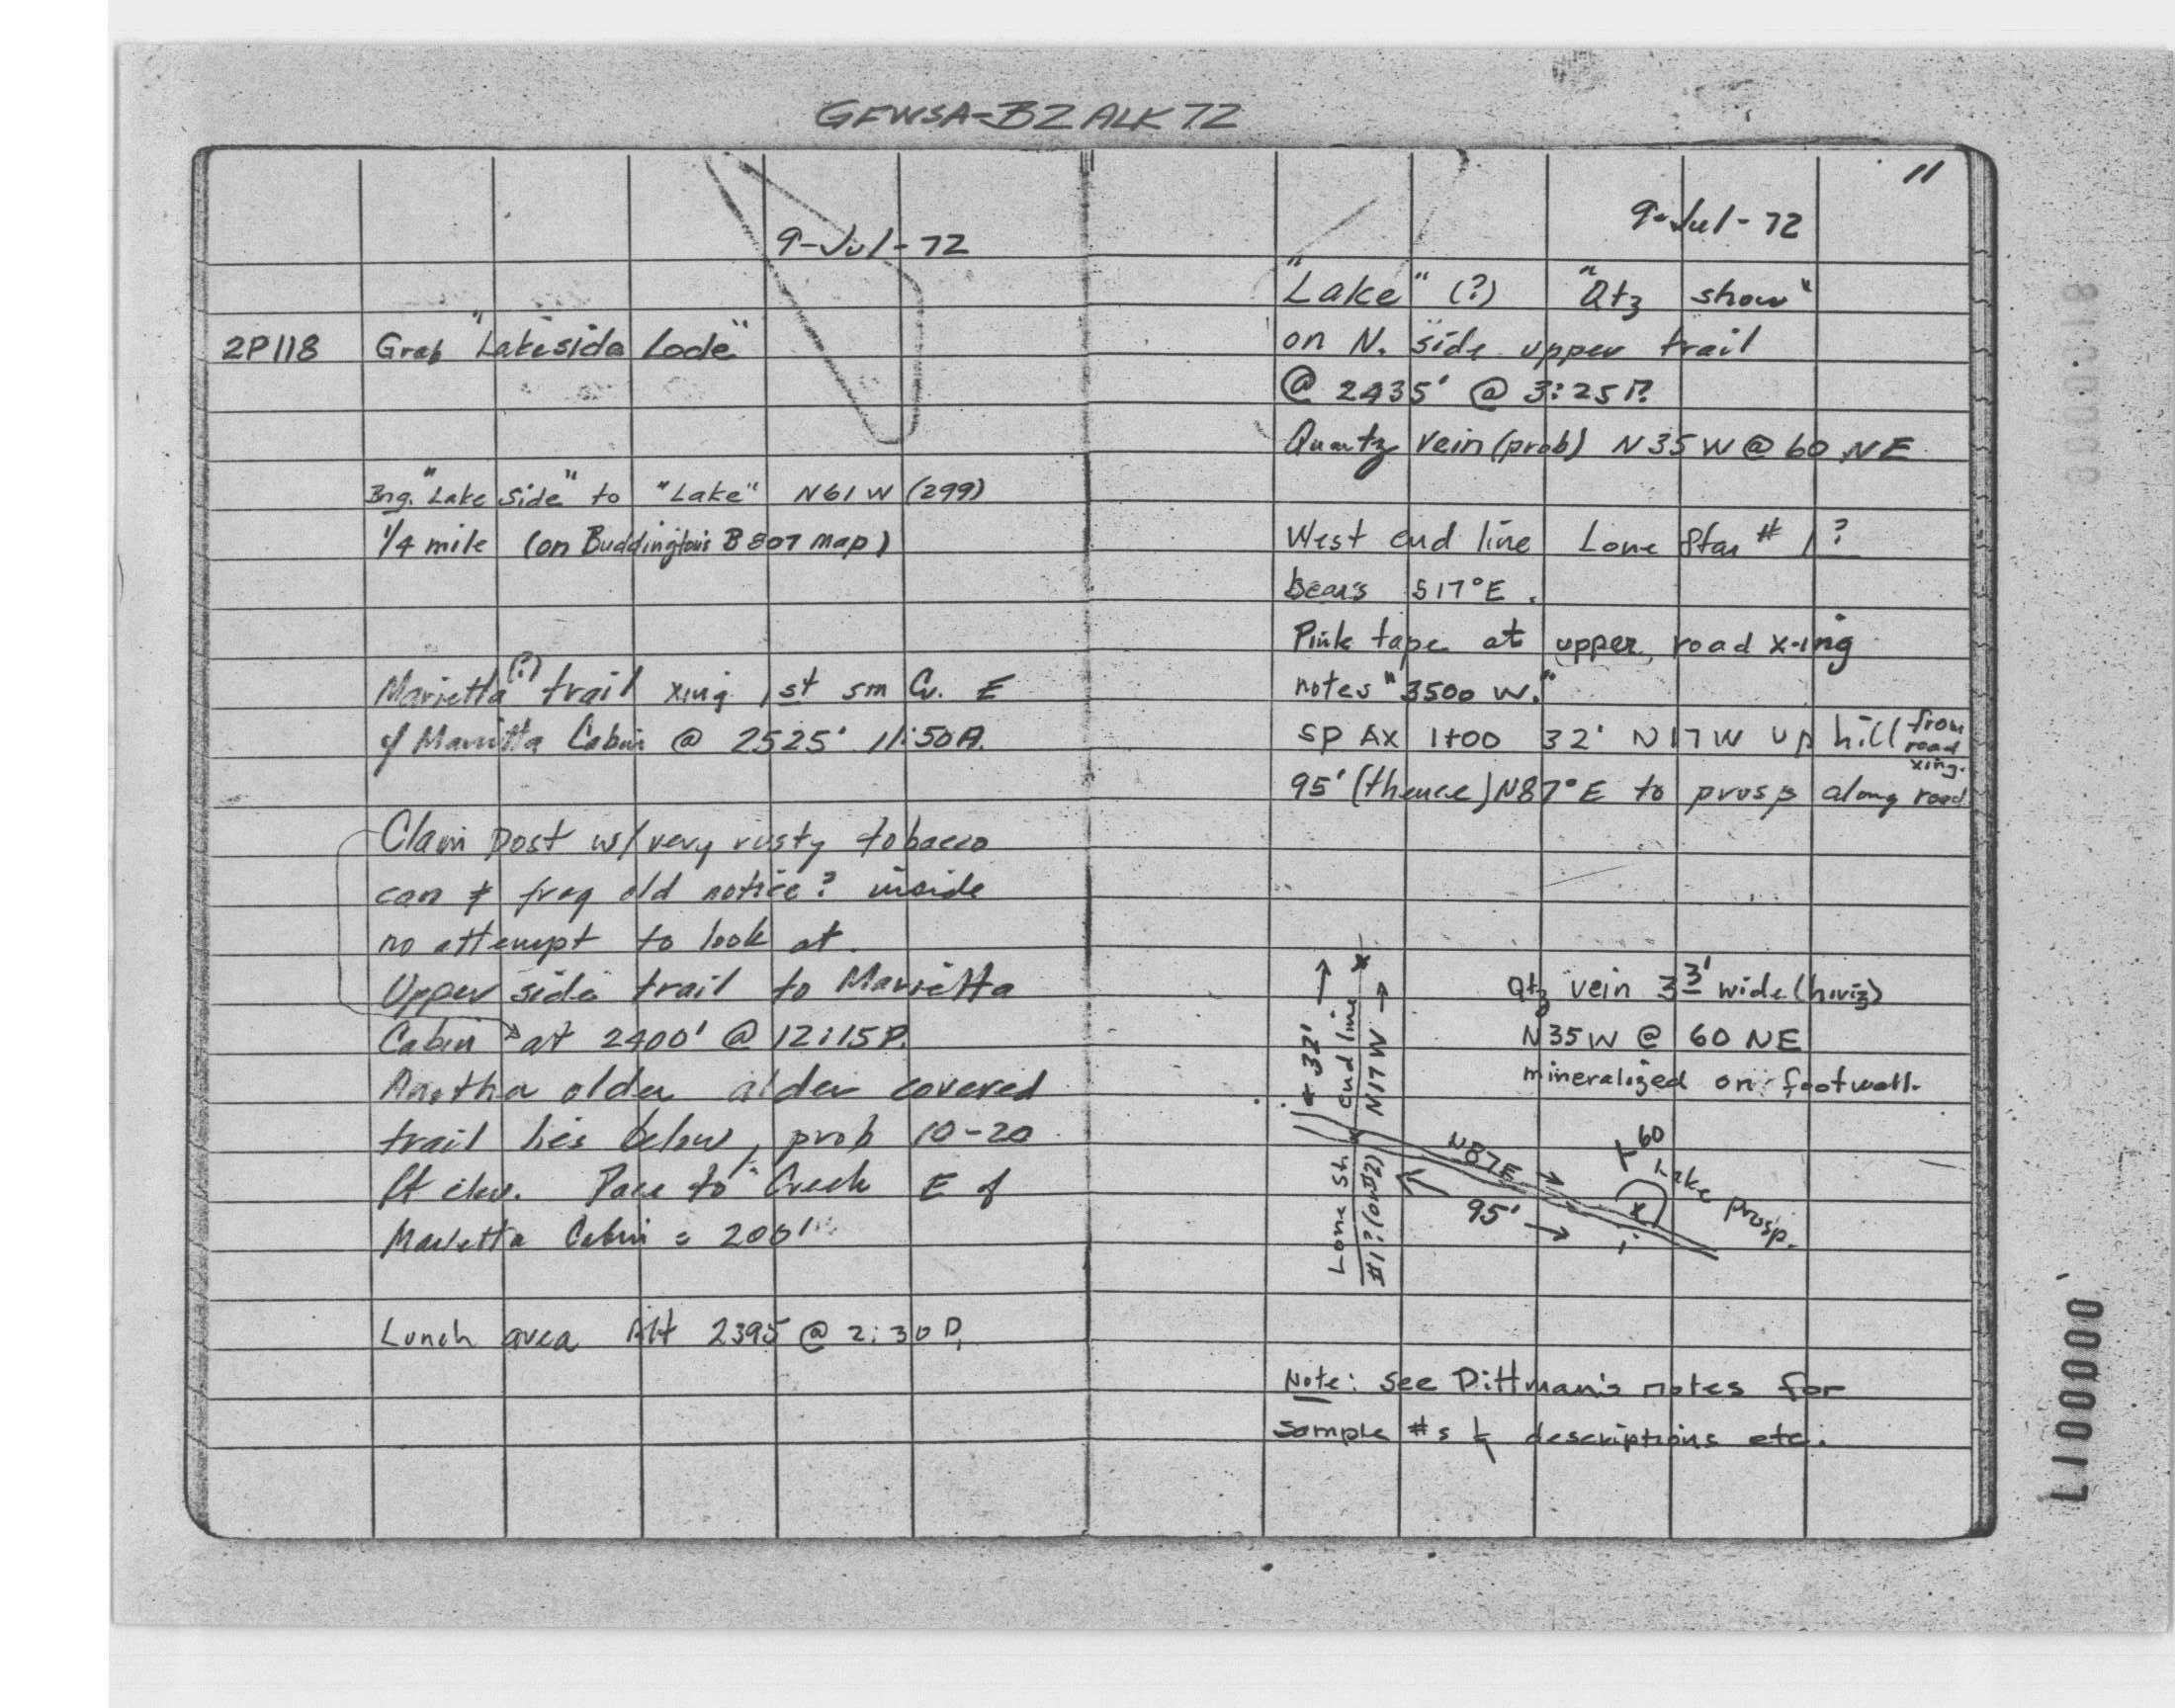 GFWSA-BZ ALK 72
9-Jul-72
2P118 Grab "Lakeside Lode"
Brg. "Lake Side" to "Lake" N61W (299)
1/4 mile (on Buddington's B 807 map)
Marietta (?) trail xing 1st sm Cr. E
of Marietta Cabin @ 2525' 11:50A.
Claim post w/ very rusty tobacco
can & frag old notice? inside
no attempt to look at.
Upper side trail to Marietta
Cabin at 2400' @ 12:15P.
Another older alder covered
trail lies below, prob 10-20
ft elev. Pace to Creek E of
Marietta Cabin = 200'
Lunch area Alt 2395 @ 2:30 P.
11
9-Jul-72
"Lake" (?) "Qtz show"
on N. side upper trail
@ 2435' @ 3:25 P.
Quartz vein (prob) N35W @ 60 NE
West end line Lone Star # 1?
bears S17°E.
Pink tape at upper road x-ing
notes "3500 W."
SP AX 1+00 32' N17W up hill from road xing.
95' (thence) N87°E to prosp along road
Qtz vein 3.3' wide (horiz)
N35W @ 60 NE
mineralized on footwall.
← 32' →
end line
N17W →
Lone St.
#1? (or #2)
N87E →
95' →
60
Lake Prosp.
Note: see Dittman's notes for
sample #s & descriptions etc.
000017